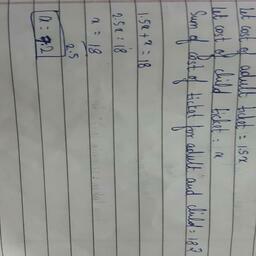 Let cost of adult ticket = 1.5x
Let cost of child ticket = x
Sum of cost of ticket for adult and child = 18?
1.5x + x = 18
2.5x = 18
x = 18
2.5
x = 7.2